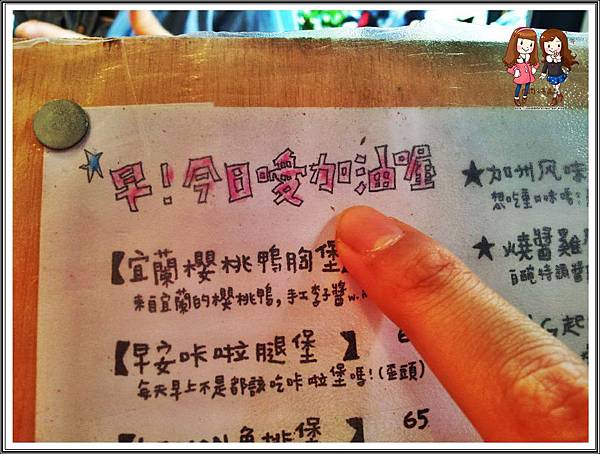 ★早!今日噯加油喔
【宜蘭櫻桃鴨胸堡】
來自宜蘭的櫻桃鴨,手工李子醬
【早安咔啦腿堡】
每天早上不是都該吃咔啦堡嗎!(歪頭)
65
魚排堡】
★加州风味
想吃重口味嗎
★燒醬雞
百晼特調醬
G起